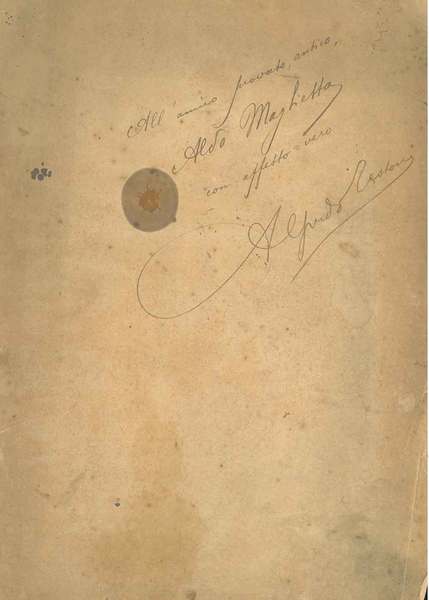 All' amico provato, antico,
Aldo Maglietta
con affetto vero
Alfredo